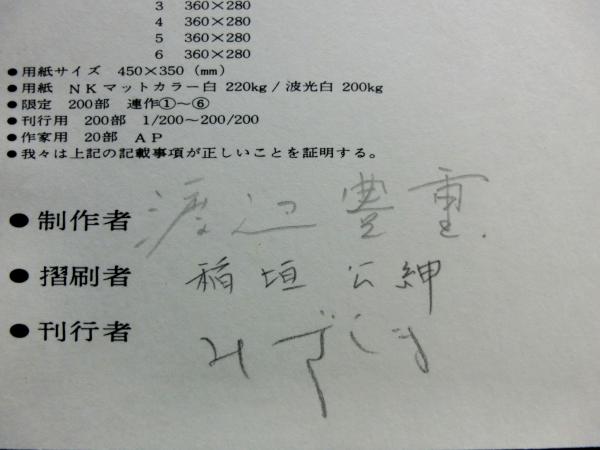 3 360×280
4 360×280
5 360×280
6 360×280
●用紙サイズ 450×350 (mm)
●用紙 NKマットカラー白 220kg / 波光白 200kg
●限定 200部 連作①~⑥
●刊行用 200部 1/200~200/200
●作家用 20部 AP
●我々は上記の記載事項が正しいことを証明する。
●制作者 渡辺豊重
●摺刷者 稲垣公紳
●刊行者